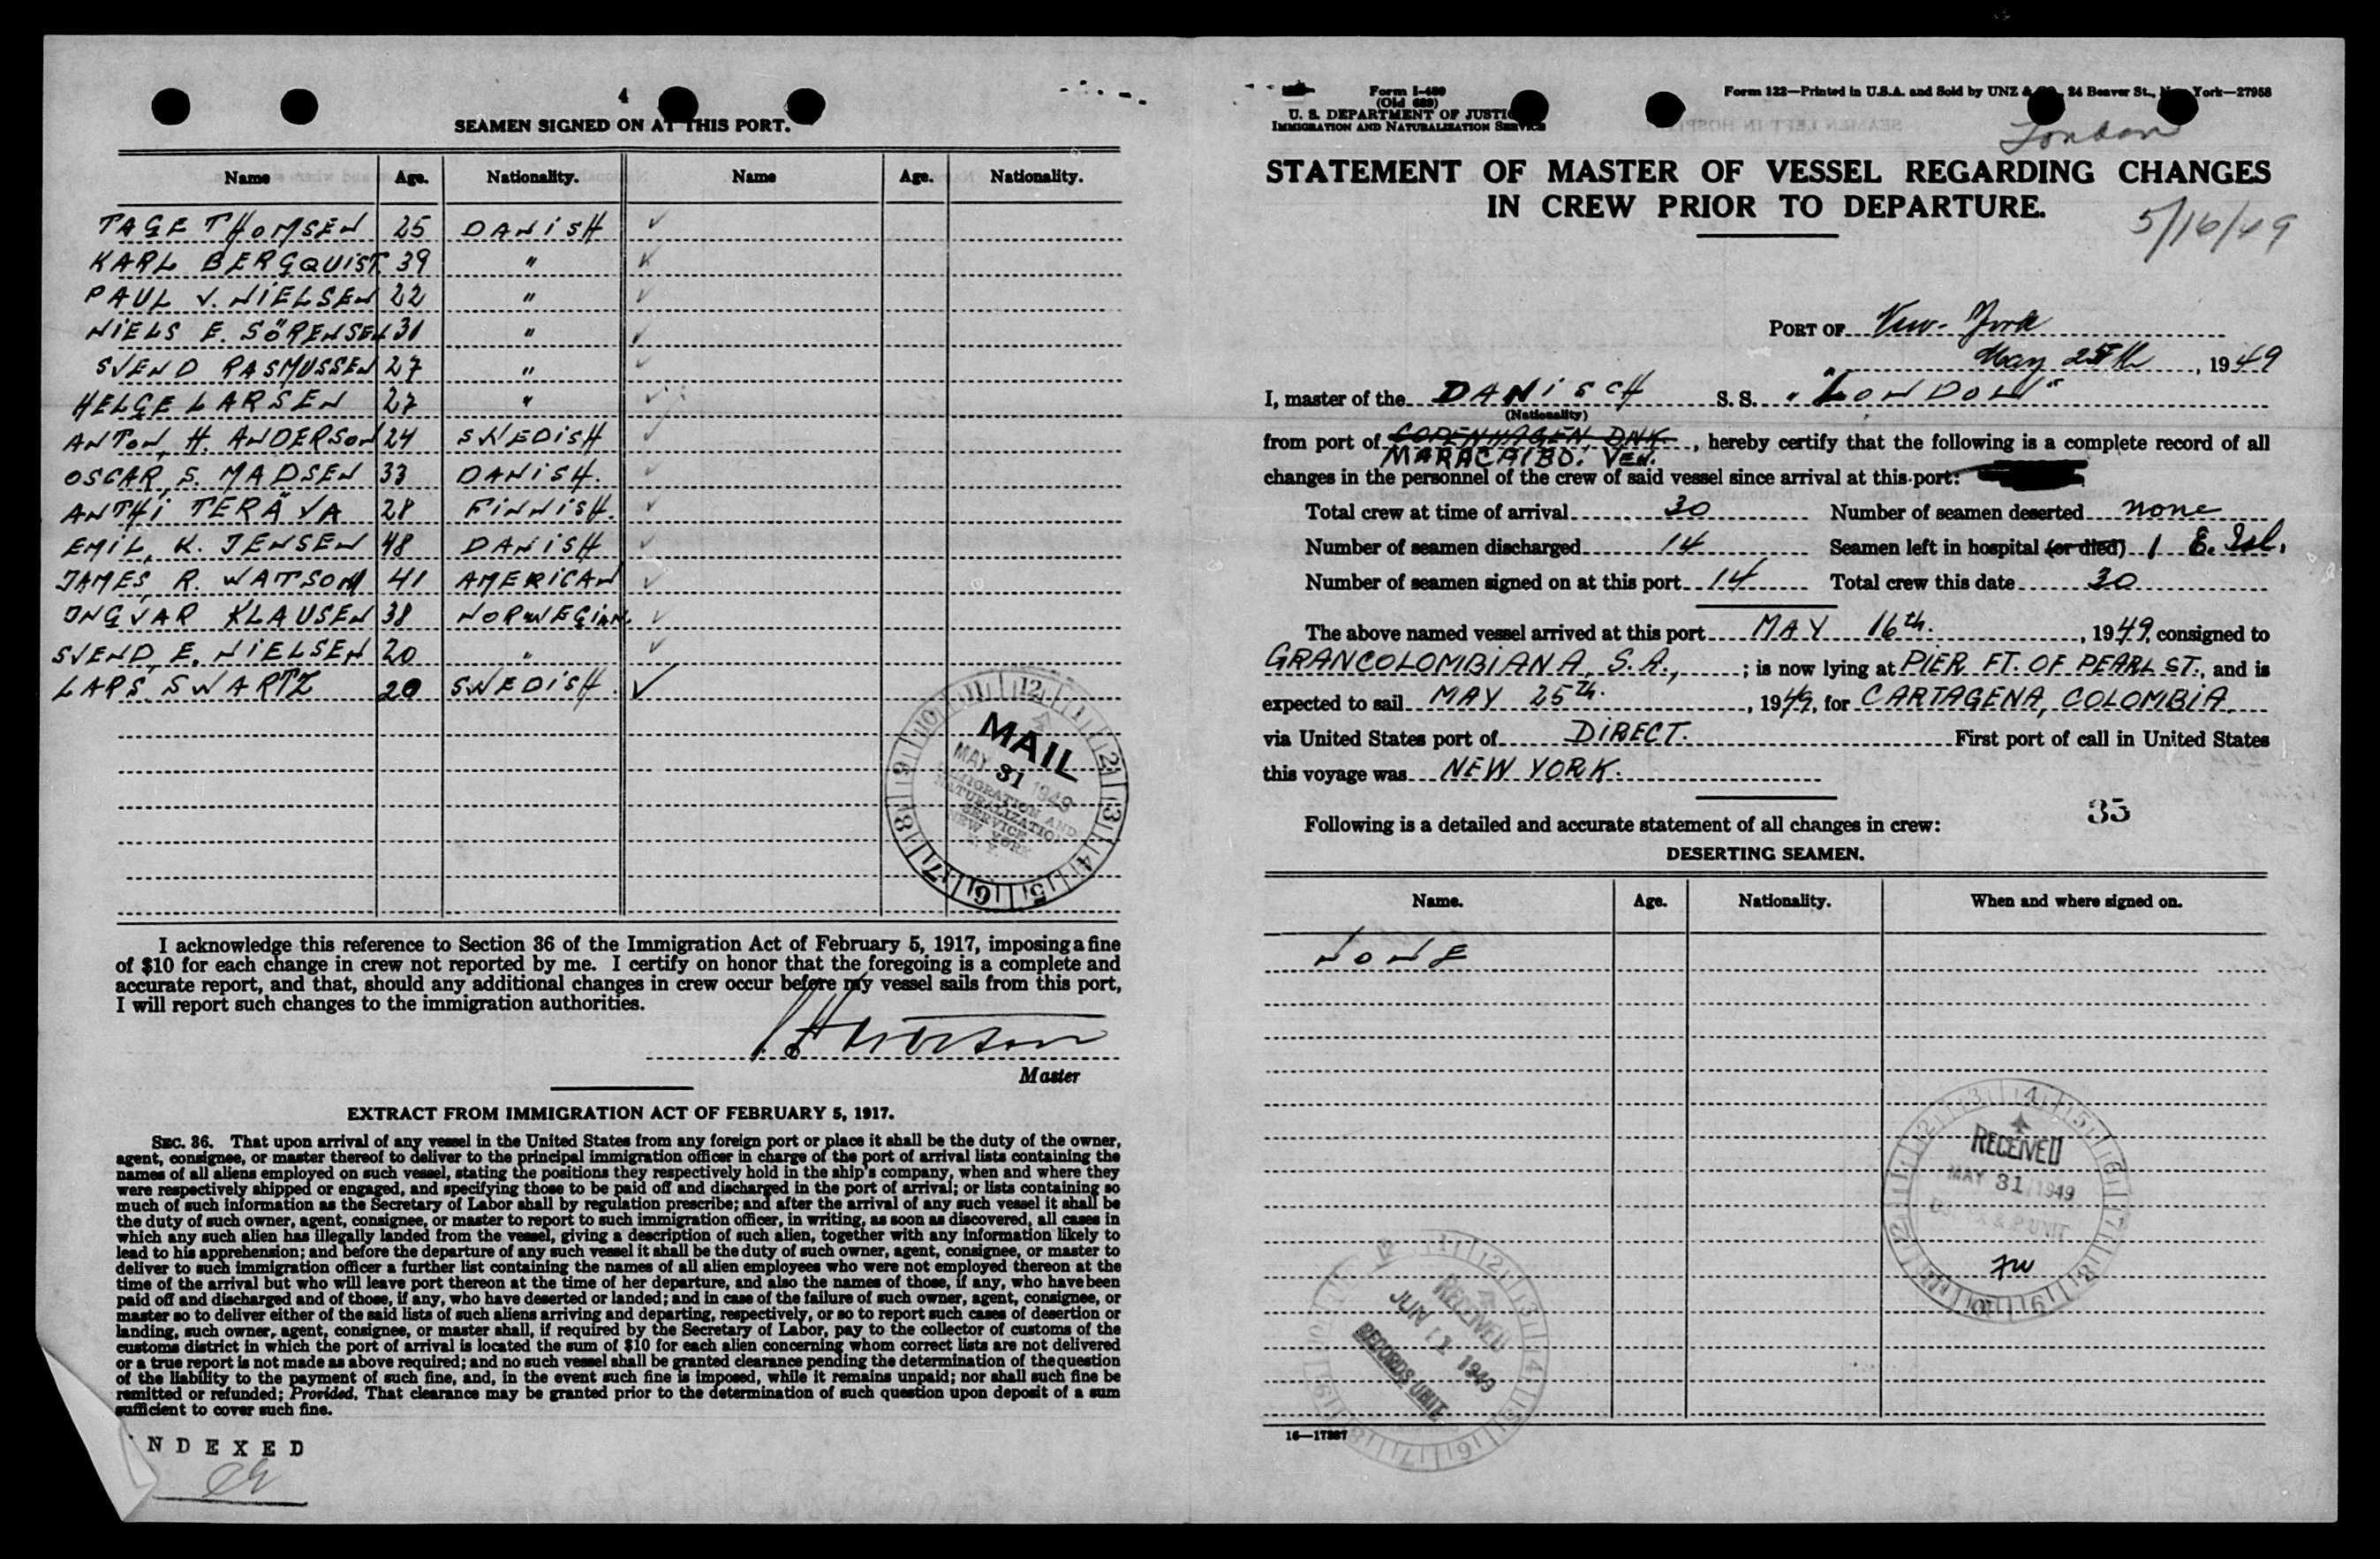 4
SEAMEN SIGNED ON AT THIS PORT.
Name Age. Nationality. Name Age. Nationality.
TAGE THOMSEN 25 DANISH ✓
KARL BERGQUIST 39 " ✓
PAUL V. NIELSEN 22 " ✓
NIELS E. SÖRENSEN 31 " ✓
SVEND RASMUSSEN 27 " ✓
HELGE LARSEN 27 " ✓
ANTON, H. ANDERSON 24 SWEDISH ✓
OSCAR, S. MADSEN 33 DANISH. ✓
ANTHI TERÄVA 28 FINNISH. ✓
EMIL, K. JENSEN 48 DANISH ✓
JAMES, R. WATSON 41 AMERICAN ✓
INGVAR KLAUSEN 38 NORWEGIAN. ✓
SVEND, E. NIELSEN 20 " ✓
LARS SWARTZ 20 SWEDISH. ✓
MAIL
MAY 31 1949
IMMIGRATION AND
NATURALIZATION
SERVICE
NEW YORK
I acknowledge this reference to Section 36 of the Immigration Act of February 5, 1917, imposing a fine
of $10 for each change in crew not reported by me. I certify on honor that the foregoing is a complete and
accurate report, and that, should any additional changes in crew occur before my vessel sails from this port,
I will report such changes to the immigration authorities.
Master
EXTRACT FROM IMMIGRATION ACT OF FEBRUARY 5, 1917.
SEC. 36. That upon arrival of any vessel in the United States from any foreign port or place it shall be the duty of the owner,
agent, consignee, or master thereof to deliver to the principal immigration officer in charge of the port of arrival lists containing the
names of all aliens employed on such vessel, stating the positions they respectively hold in the ship's company, when and where they
were respectively shipped or engaged, and specifying those to be paid off and discharged in the port of arrival; or lists containing so
much of such information as the Secretary of Labor shall by regulation prescribe; and after the arrival of any such vessel it shall be
the duty of such owner, agent, consignee, or master to report to such immigration officer, in writing, as soon as discovered, all cases in
which any such alien has illegally landed from the vessel, giving a description of such alien, together with any information likely to
lead to his apprehension; and before the departure of any such vessel it shall be the duty of such owner, agent, consignee, or master to
deliver to such immigration officer a further list containing the names of all alien employees who were not employed thereon at the
time of the arrival but who will leave port thereon at the time of her departure, and also the names of those, if any, who have been
paid off and discharged and of those, if any, who have deserted or landed; and in case of the failure of such owner, agent, consignee, or
master so to deliver either of the said lists of such aliens arriving and departing, respectively, or so to report such cases of desertion or
landing, such owner, agent, consignee, or master shall, if required by the Secretary of Labor, pay to the collector of customs of the
customs district in which the port of arrival is located the sum of $10 for each alien concerning whom correct lists are not delivered
or a true report is not made as above required; and no such vessel shall be granted clearance pending the determination of the question
of the liability to the payment of such fine, and, in the event such fine is imposed, while it remains unpaid; nor shall such fine be
remitted or refunded; Provided, That clearance may be granted prior to the determination of such question upon deposit of a sum
sufficient to cover such fine.
NDEXED
Form I-489
(Old 689)
U. S. DEPARTMENT OF JUSTICE
IMMIGRATION AND NATURALIZATION SERVICE
Form 122—Printed in U.S.A. and Sold by UNZ & CO., 24 Beaver St., New York—27958
London
STATEMENT OF MASTER OF VESSEL REGARDING CHANGES
IN CREW PRIOR TO DEPARTURE.
5/16/49
PORT OF New-York
May 25th, 1949
I, master of the DANISCH S. S. "LONDON"
(Nationality)
from port of COPENHAGEN DNK., hereby certify that the following is a complete record of all
MARACAIBO. VEN.
changes in the personnel of the crew of said vessel since arrival at this port:
Total crew at time of arrival 30 Number of seamen deserted none
Number of seamen discharged 14 Seamen left in hospital (or died) 1 E. Isl.
Number of seamen signed on at this port 14 Total crew this date 30
The above named vessel arrived at this port MAY 16th., 1949, consigned to
GRANCOLOMBIANA, S.A.,; is now lying at PIER FT. OF PEARL ST., and is
expected to sail MAY 25th., 1949, for CARTAGENA, COLOMBIA.
via United States port of DIRECT. First port of call in United States
this voyage was NEW YORK.
35
Following is a detailed and accurate statement of all changes in crew:
DESERTING SEAMEN.
Name. Age. Nationality. When and where signed on.
NONE
RECEIVED
MAY 31 1949
& P UNIT
RECEIVED
JUN 1 1949
RECORDS UNIT
16—17387